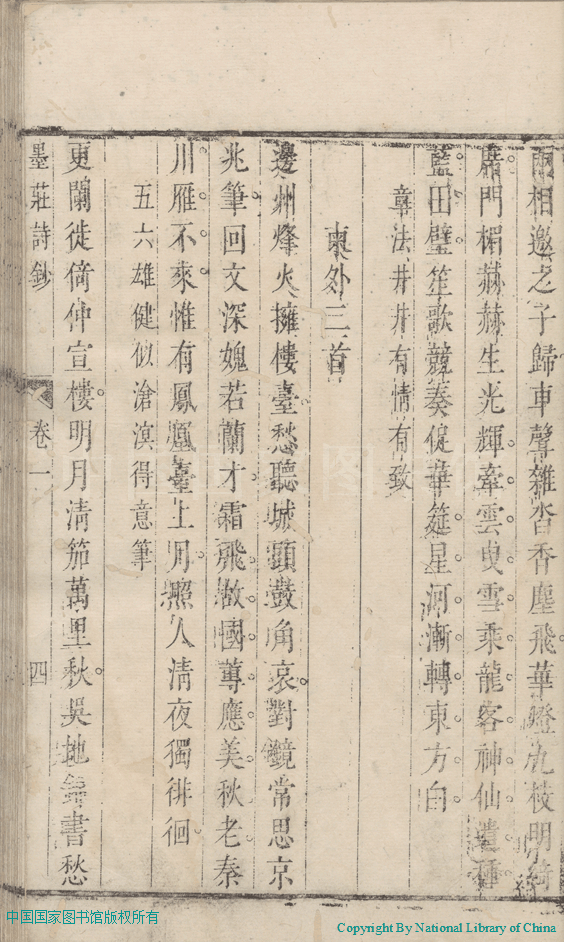 兩相邀之子歸車聲雜沓香塵飛華燈九枝明綺
席門楣赫赫生光輝牽雲曳雪乘龍客神仙遺種
藍田璧笙歌競奏促華筵星河漸轉東方白
章法井井有情有致
柬外三首
邊州烽火擁樓臺愁聽城頭鼓角哀對鏡常思京
兆筆回文深媿若蘭才霜飛故國蓴應美秋老秦
川雁不來惟有鳳凰臺上月照人清夜獨徘徊
五六雄健似滄溟得意筆
更闌徙倚仲宣樓明月清笳萬里秋吳地無書愁
墨莊詩鈔
卷一
四
中国国家图书馆版权所有
Copyright By National Library of China